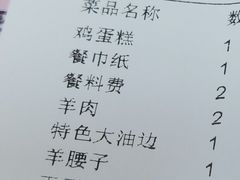 菜品名称 数
鸡蛋糕 1
餐巾纸 1
餐料费 2
羊肉 2
特色大油边 1
羊腰子 1